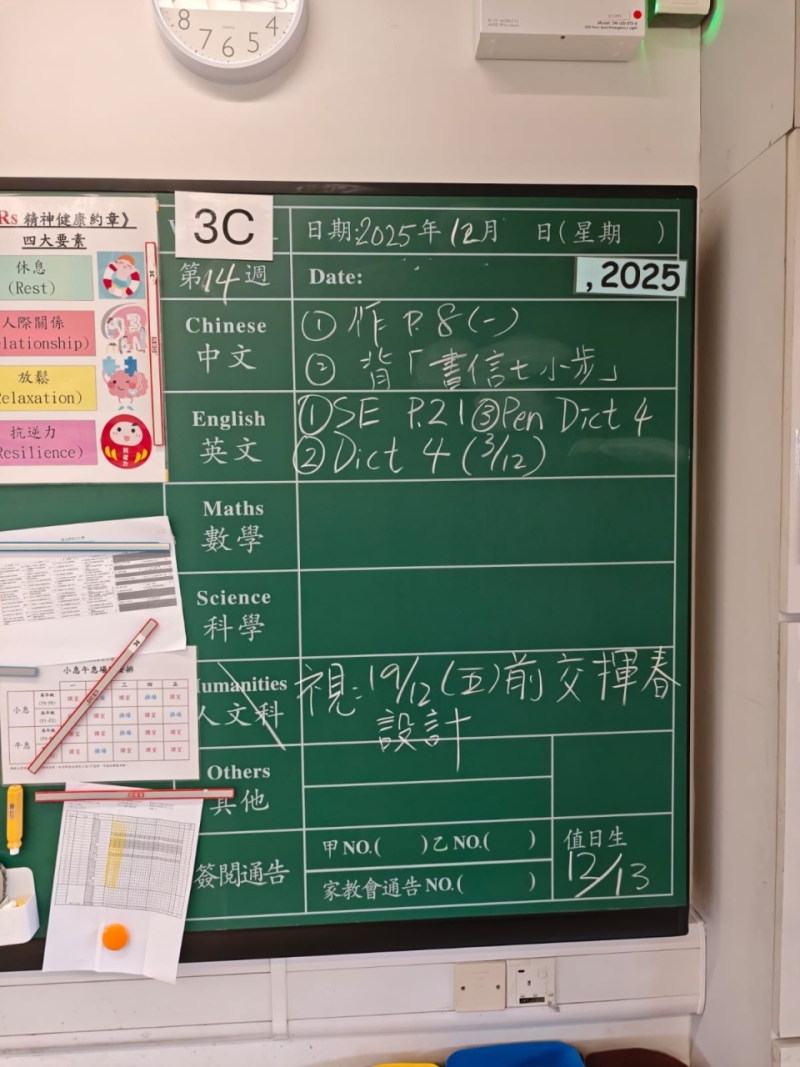 8 7 6 5 4
Rs 精神健康約章》
四大要素
休息
(Rest)
人際關係
elationship)
放鬆
elaxation)
抗逆力
esilience)
3C
日期:2025年12月 日(星期 )
第14週
Date: , 2025
Chinese
中文
① 作 P.8(一)
② 背「書信七小步」
English
英文
①SE P.21 ③Pen Dict 4
② Dict 4 (3/12)
Maths
數學
Science
科學
Humanities
人文科
視: 19/12 (五)前交揮春
設計
Others
其他
簽閱通告
甲NO.( )乙NO.( )
家教會通告NO.( )
值日生
12/13
小息
午息